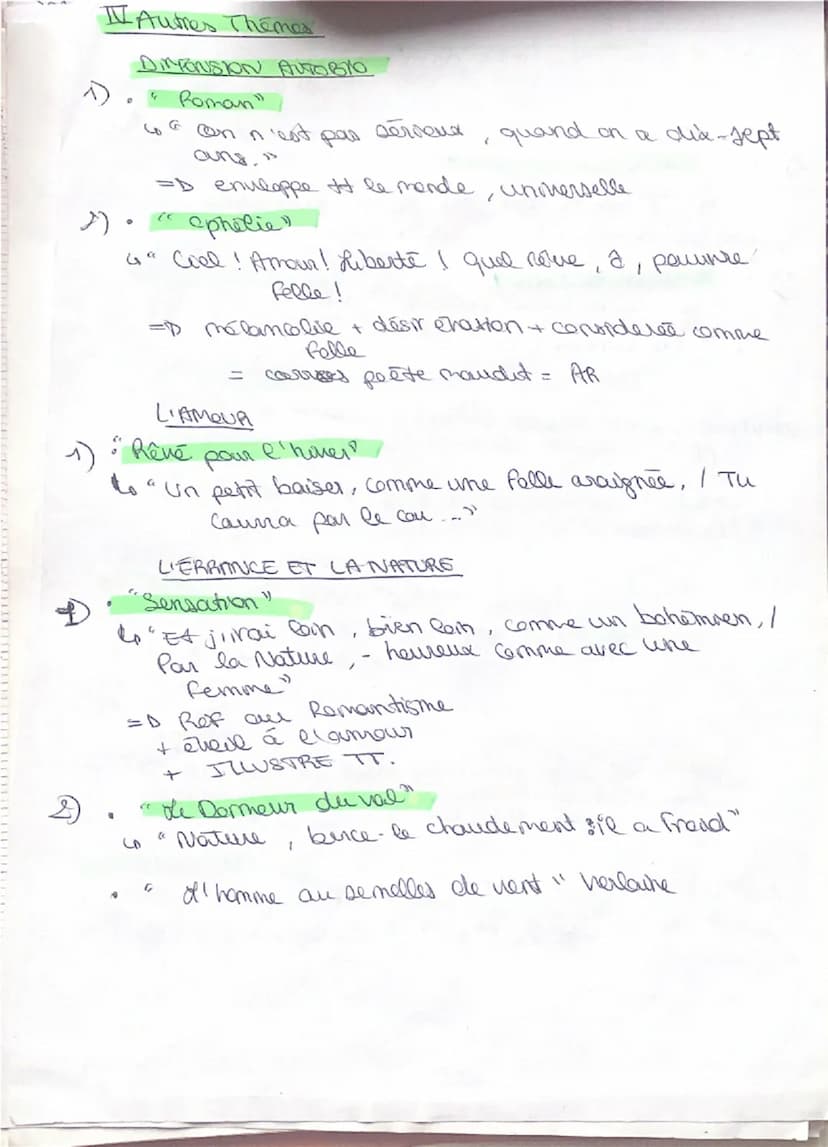 IV Autres Thèmes
DIMENSION AUTOBIO
1) • "Roman"
↳ "On n'est pas sérieux, quand on a dix-sept
ans."
=> enveloppe tt le monde, universelle
2) • "Ophélie"
↳ "Ciel ! Amour ! Liberté ! Quel rêve, ô, pauvre
folle !
=> mélancolie + désir évasion + considérée comme
folle
= poète maudit = AR
L'AMOUR
1) • "Rêvé pour l'hiver"
↳ "Un petit baiser, comme une folle araignée, / Tu
courra par le cou..."
L'ERRANCE ET LA NATURE
1) • "Sensation"
↳ "Et j'irai loin, bien loin, comme un bohémien, /
Par la Nature, - heureux comme avec une
femme"
=> Ref au Romantisme
+ éveil à l'amour
+ ILLUSTRE TT.
2) • "Le Dormeur du val"
↳ "Nature, berce-le chaudement : il a froid"
• " L'homme au semelles de vent" Verlaine